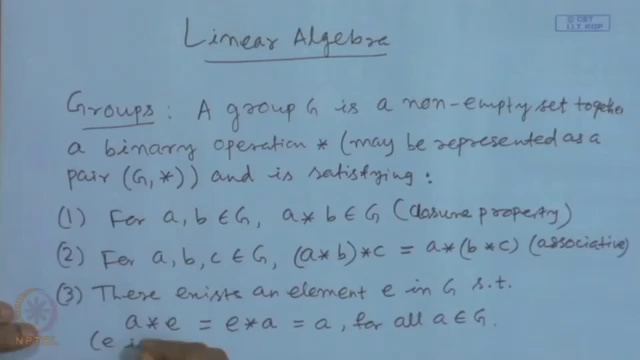 © CET
I.I.T. KGP
Linear Algebra
Groups: A group G is a non-empty set together
a binary operation * (may be represented as a
pair (G, *)) and is satisfying:
(1) For a, b ∈ G, a * b ∈ G (closure property)
(2) For a, b, c ∈ G, (a * b) * c = a * (b * c) (associative)
(3) There exists an element e in G s.t.
a * e = e * a = a, for all a ∈ G.
(e i
NPTEL